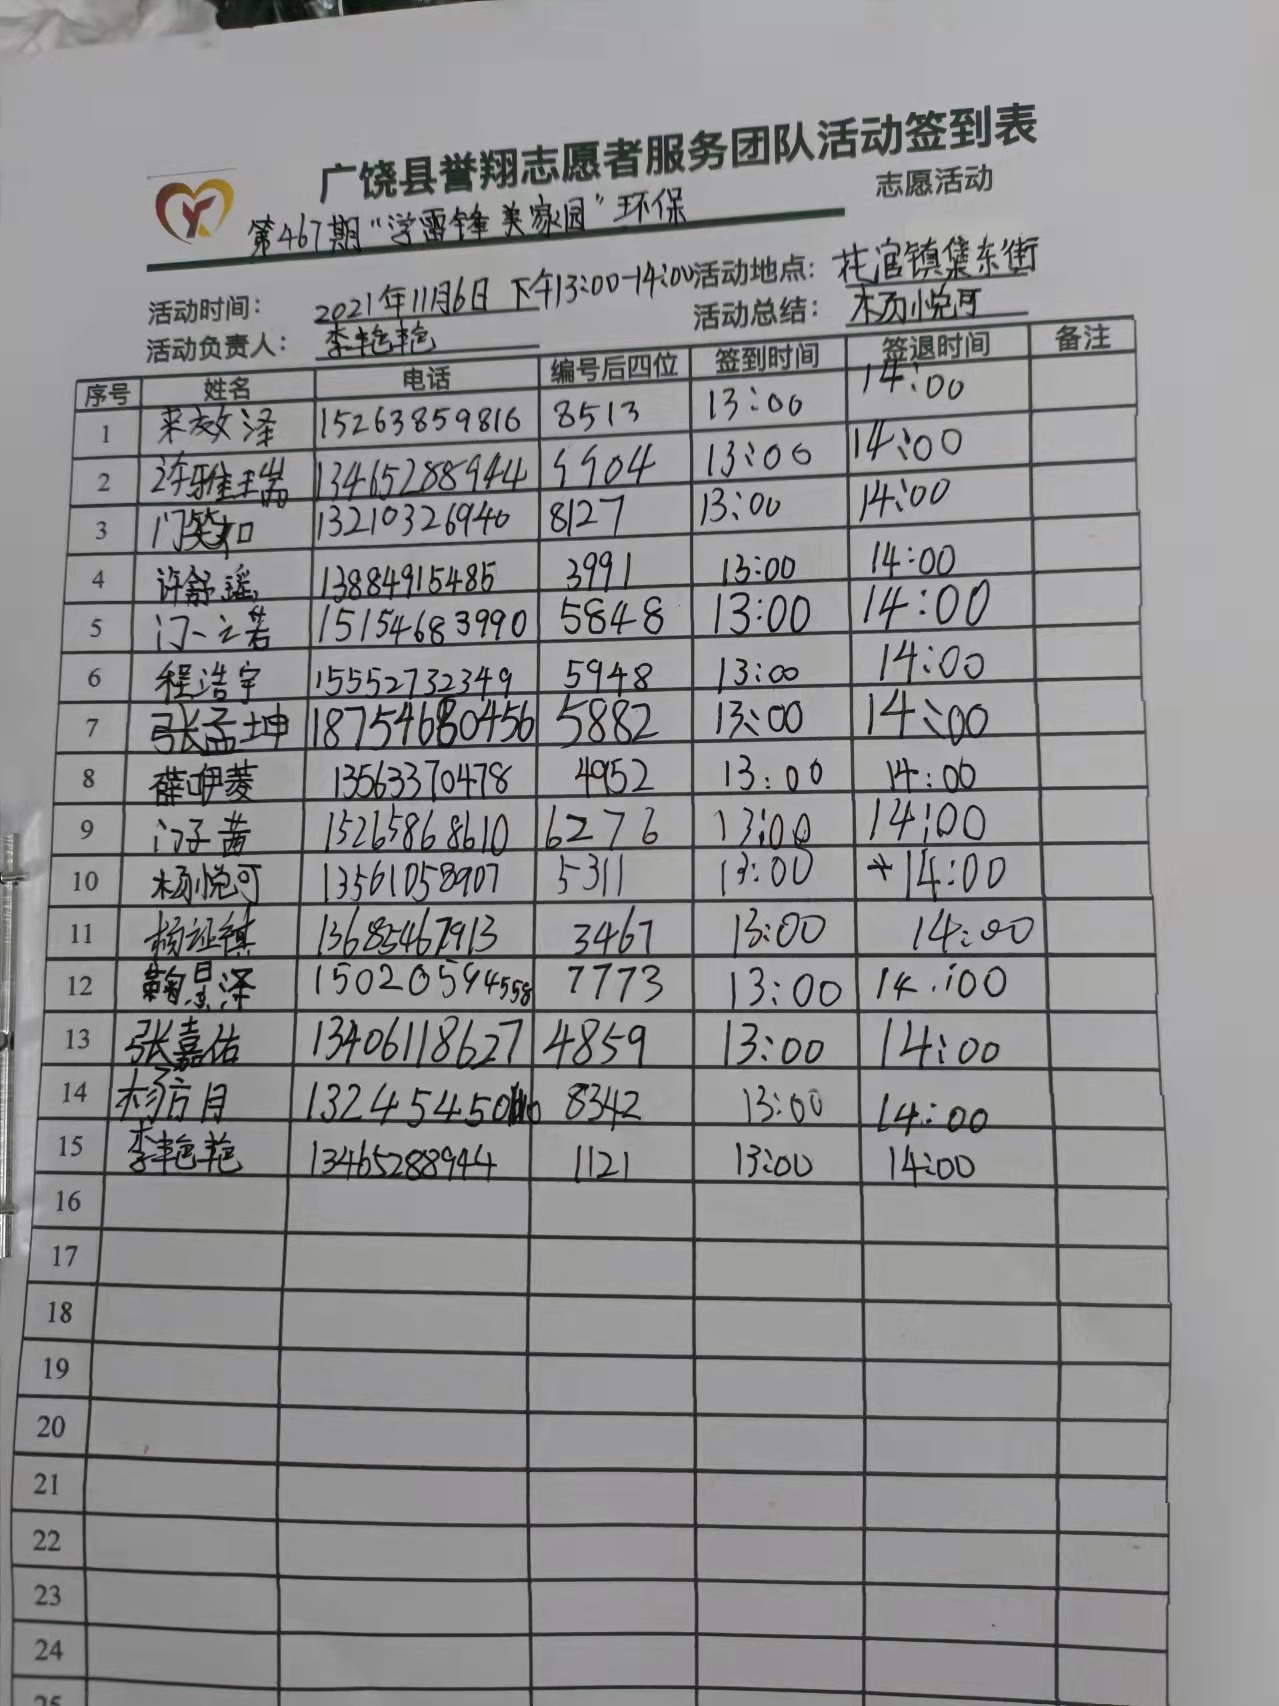 广饶县誉翔志愿者服务团队活动签到表
第467期"学雷锋 美家园"环保 志愿活动
活动时间： 2021年11月6日 下午13:00-14:00 活动地点： 花官镇集东街
活动负责人： 李艳艳 活动总结： 杨悦可
序号 姓名 电话 编号后四位 签到时间 签退时间 备注
1 来效泽 15263859816 8513 13:00 14:00
2 许雅瑞 13465288944 9904 13:00 14:00
3 门笑如 13210326940 8127 13:00 14:00
4 许舒瑶 13884915485 3991 13:00 14:00
5 门一若 15154683990 5848 13:00 14:00
6 程浩宇 15552732349 5948 13:00 14:00
7 张孟坤 18754680456 5882 13:00 14:00
8 薛咿菱 13563370478 4952 13:00 14:00
9 门子茜 15265868610 6276 13:00 14:00
10 杨悦可 13561058907 5311 13:00 14:00
11 杨 13685467913 3467 13:00 14:00
12 鞠景泽 15020594558 7773 13:00 14:00
13 张嘉佑 13406118627 4859 13:00 14:00
14 杨方月 8342 13:00 14:00
15 李艳艳 13465288944 1121 13:00 14:00
16
17
18
19
20
21
22
23
24
25